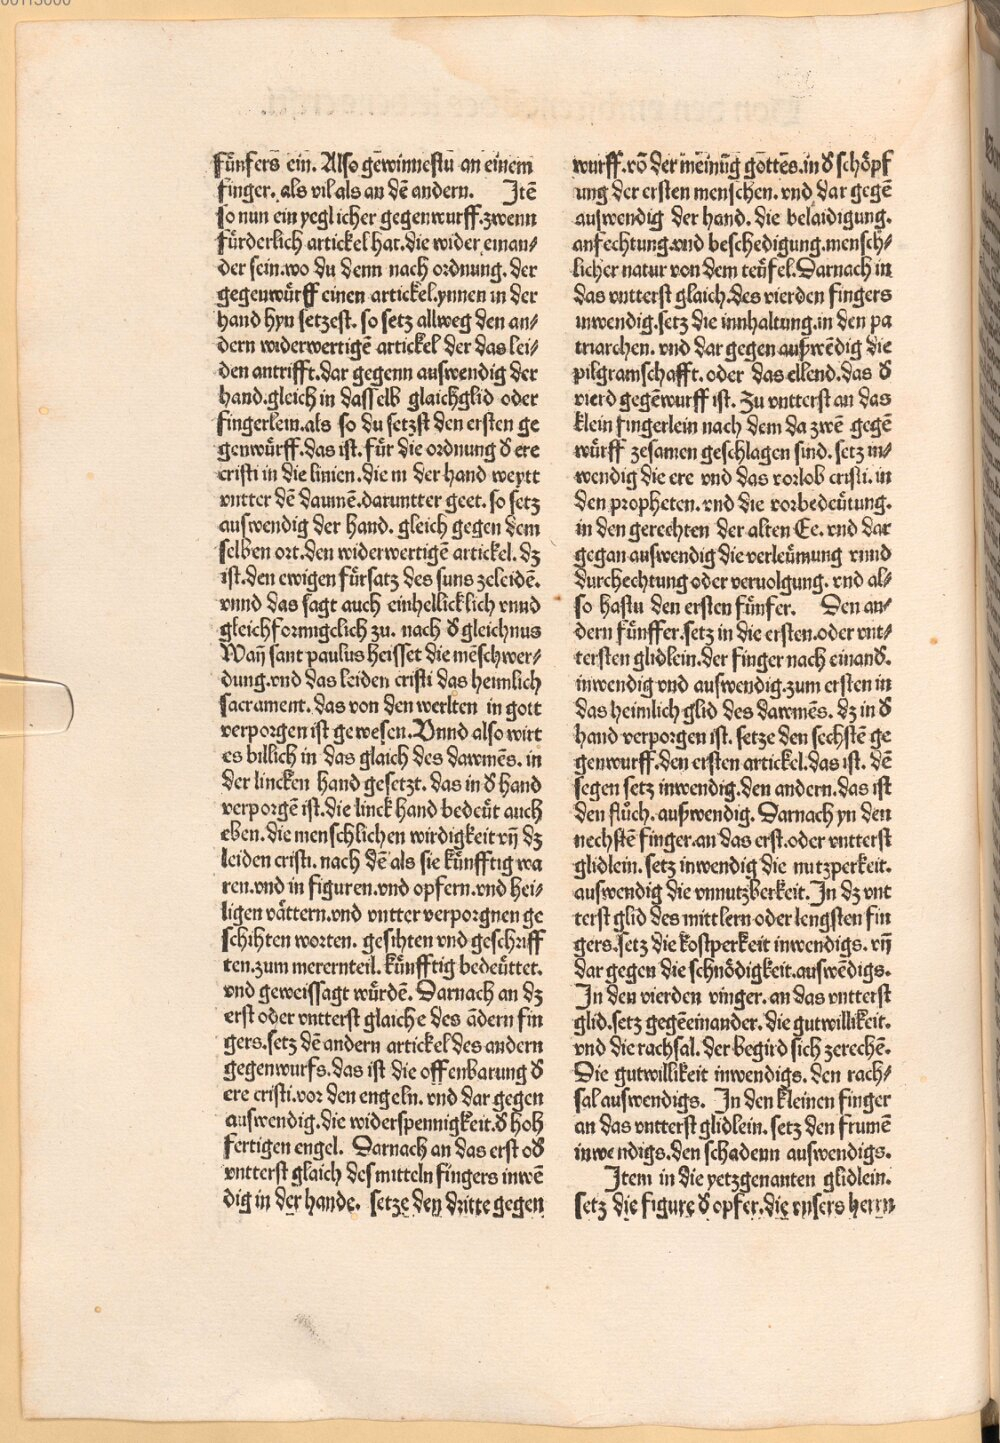 fünfers ein. Also gewinnestu an einem
finger. als vil als an dē andern. Itē
so nun ein yeglicher gegenwurff. zwenn
fürderlich artickel hat. die wider einan⸗
der sein. wo du denn nach ordnung. der
gegenwürff einen artickel. ynnen in der
hand hyn setzest. so setz allweg den an⸗
dern widerwertigē artickel der das lei⸗
den antrifft. dar gegenn auswendig der
hand. gleich in dasselb glaichglid oder
fingerlein. als so du setzst den ersten ge
genwürff. das ist. für die ordnung ð ere
cristi in die linien. die in der hand weytt
vntter dē daumē. daruntter geet. so setz
auswendig der hand. gleich gegen dem
selben ort. den widerwertigē artickel. dz
ist. den ewigen fürsatz des suns zeleidē.
vnnd das sagt auch einhellicklich vnnd
gleichformigclich zu. nach ð gleichnus
Wañ sant paulus heisset die mēschwer⸗
dung. vnd das leiden cristi das heimlich
sacrament. das von den werlten in gott
verporgen ist gewesen. Vnnd also wirt
es billich in das glaich des dawmēs. in
der lincken hand gesetzt. das in ð hand
verporgē ist. die linck hand bedeüt auch
eben. die menschlichen wirdigkeit vñ dz
leiden cristi. nach dē als sie künfftig wa
ren. vnd in figuren. vnd opfern. vnd hei⸗
ligen vättern. vnd vntter verporgnen ge
schihten worten. gesihten vnd geschriff
ten. zum merernteil. künfftig bedeüttet.
vnd geweissagt würdē. Darnach an dz
erst oder vntterst glaiche des ādern fin
gers. setz dē andern artickel des andern
gegenwurfs. das ist die offenbarung ð
ere cristi. vor den engeln. vnd dar gegen
auswendig. die widerspennigkeit. ð hoh
fertigen engel. Darnach an das erst oð
vntterst glaich des mitteln fingers inwē
dig in der hande. setze den dritte gegen
wurff. vō der meinūg gottes. in ð schöpf
ung der ersten menschen. vnd dar gegē
auswendig der hand. die belaidigung.
anfechtung. vnd beschedigung. mensch⸗
licher natur von dem teüfel. Darnach in
das vntterst glaich. des vierden fingers
inwendig. setz die innhaltung. in den pa
triarchen. vnd dar gegen außwēdig die
pilgramschafft. oder das ellend. das ð
vierd gegēwurff ist. Zu vntterst an das
klein fingerlein nach dem da zwē gegē
würff zesamen geschlagen sind. setz in⸗
wendig die ere vnd das vorlob cristi. in
den propheten. vnd die vorbedeütung.
in den gerechten der alten Ee. vnd dar
gegan auswendig die verleümung vnnd
durchechtung oder veruolgung. vnd al⸗
so hastu den ersten fünfer. Den an⸗
dern fünffer. setz in die ersten. oder vnt⸗
tersten glidlein. der finger nach einanð.
inwendig vnd auswendig. zum ersten in
das heimlich glid des dawmēs. dz in ð
hand verporgen ist. setze den sechstē ge
genwurff. den ersten artickel. das ist. dē
segen setz inwendig. den andern. das ist
den flůch. außwendig. Darnach yn den
nechstē finger. an das erst. oder vntterst
glidlein. setz inwendig die nutzperkeit.
auswendig die vnnutzberkeit. In dz vnt
terst glid des mittlern oder lengsten fin
gers. setz die kostperkeit inwendigs. vñ
dar gegen die schnödigkeit. auswēdigs.
In den vierden vinger. an das vntterst
glid. setz gegēeinander. die gutwillikeit.
vnd die rachsal. der begird sich zerechē.
Die gutwillikeit inwendigs. den rach⸗
sal auswendigs. In den kleinen finger
an das vntterst glidlein. setz den frumē
inwendigs. den schadenn auswendigs.
Item in die yetzgenanten glidlein.
setz die figure ð opfer. die vnsers herrn